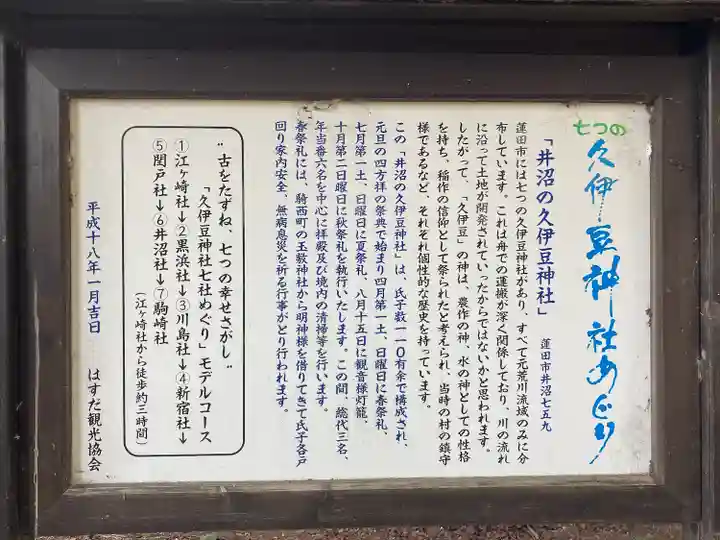 七つの
久伊豆神社めぐり
「井沼の久伊豆神社」
蓮田市井沼七五九
蓮田市には七つの久伊豆神社があり、すべて元荒川流域のみに分
布しています。これは舟での運搬が深く関係しており、川の流れ
に沿って土地が開発されていったからではないかと思われます。
したがって、「久伊豆」の神は、農作の神、水の神としての性格
を持ち、稲作の信仰として祭られたと考えられ、当時の村の鎮守
様であるなど、それぞれ個性的な歴史を持っています。
この「井沼の久伊豆神社」は、氏子数一一〇有余で構成され、
元旦の四方拝の祭典で始まり四月第一土、日曜日に春祭礼、
七月第一土、日曜日に夏祭礼、八月十五日に観音様灯籠、
十月第二日曜日に秋祭礼を執行いたします。この間、総代三名、
年当番六名を中心に拝殿及び境内の清掃等を行います。
春祭礼には、騎西町の玉敷神社から明神様を借りてきて氏子各戸
回り家内安全、無病息災を祈る行事がとり行われます。
"古をたずね、七つの幸せさがし"
「久伊豆神社七社めぐり」モデルコース
①江ヶ崎社→②黒浜社→③川島社→④新宿社→
⑤閏戸社→⑥井沼社→⑦駒崎社
(江ヶ崎社から徒歩約三時間)
平成十八年一月吉日
はすだ観光協会